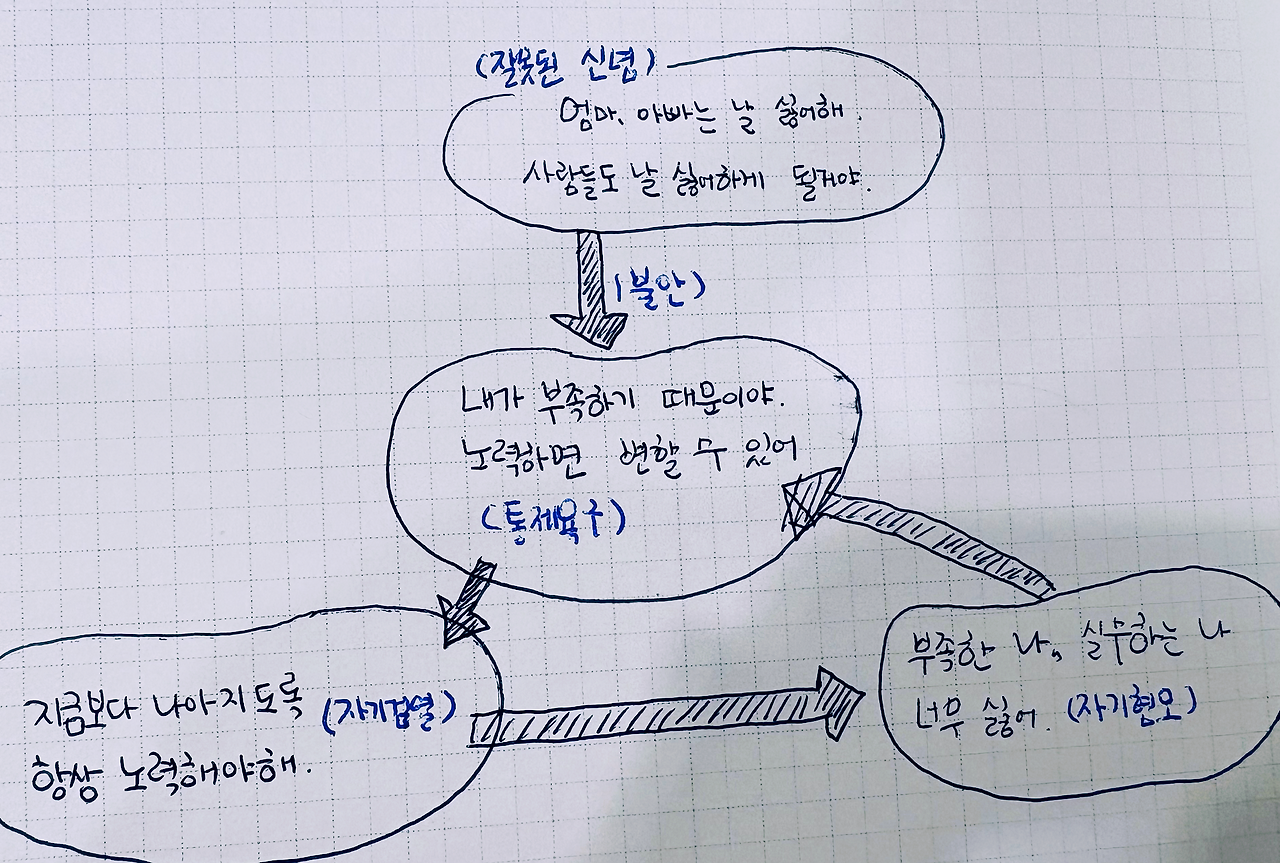 (잘못된 신념)
엄마, 아빠는 날 싫어해.
사람들도 날 싫어하게 될거야.
(불안)
내가 부족하기 때문이야.
노력하면 변할 수 있어
(통제욕구)
지금보다 나아지도록 (자기검열)
항상 노력해야해.
부족한 나, 실수하는 나
너무 싫어. (자기혐오)